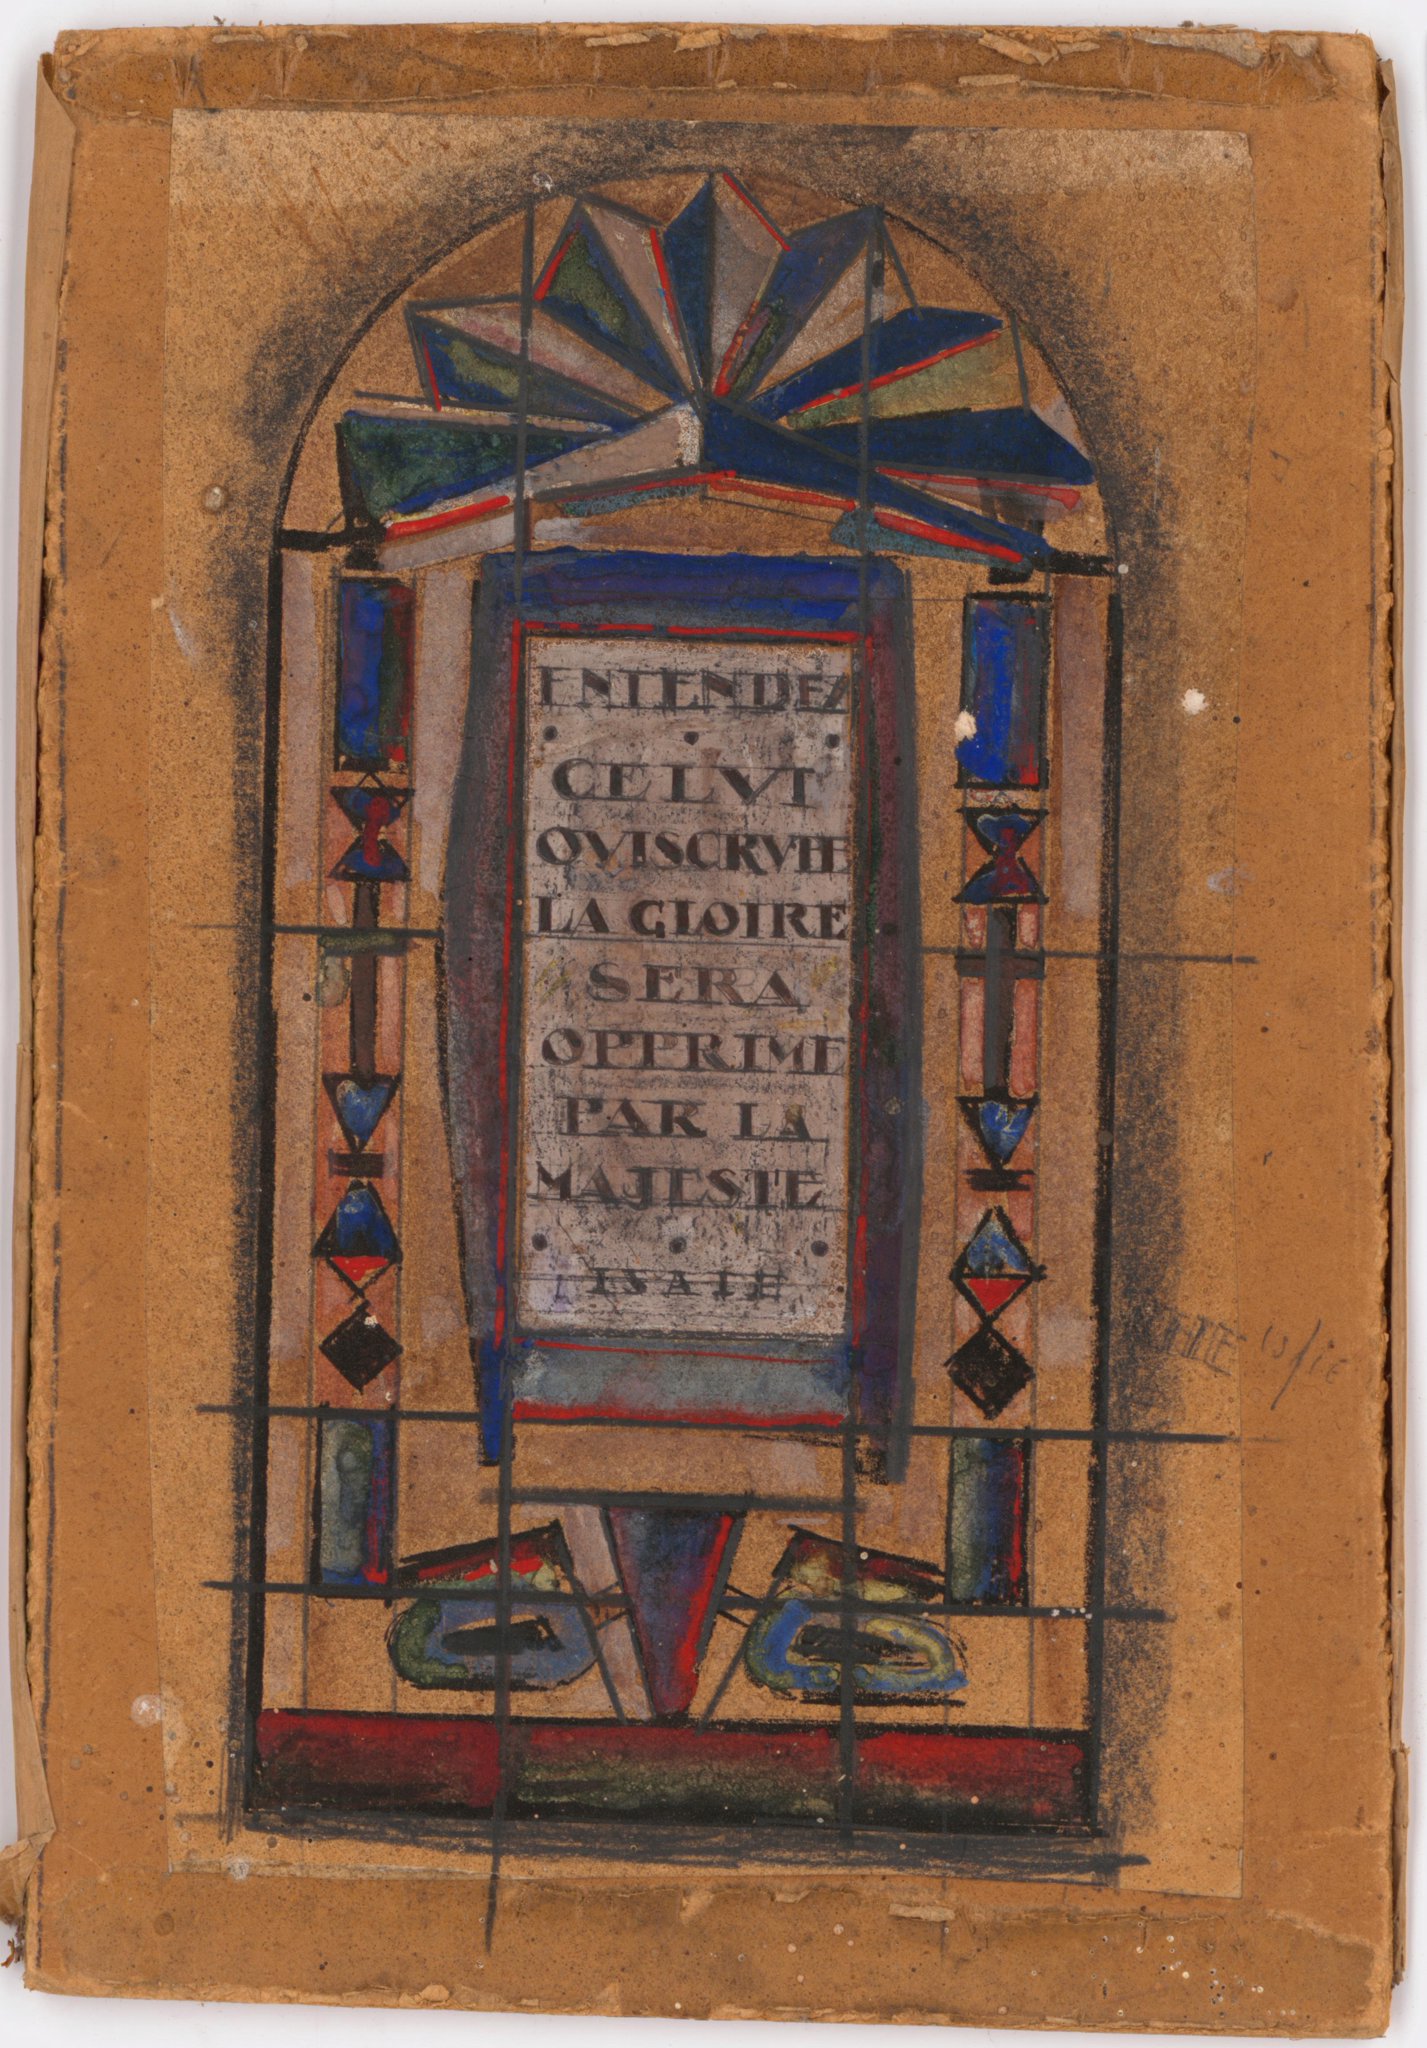 ENTENDEZ
CELVI
QVI SCRVTE
LA GLOIRE
SERA
OPPRIME
PAR LA
MAJESTE
ISAIE